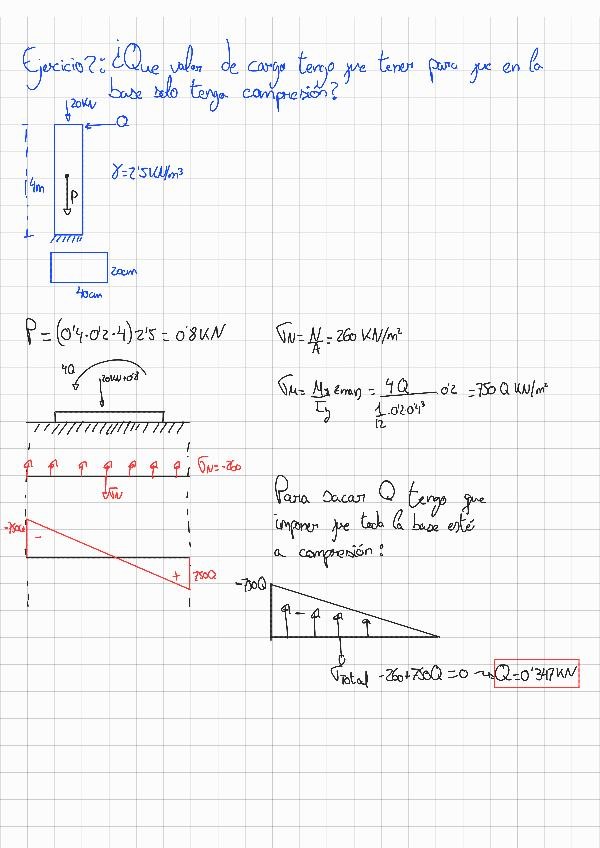 Ejercicio 2: ¿Que valor de carga tengo que tener para que en la
base solo tenga compresión?
20KN
Q
4m
γ=2'5KN/m³
P
20cm
40cm
P=(0'4·0'2·4)2'5=0'8KN
σN=N/A=260 KN/m²
4Q
20KN+0'8
σM=My/Iy zmax=4Q/(1/12·0'2·0'4³)·0'2=750Q KN/m²
σN=-260
σN
-750Q
-
+
750Q
Para sacar Q tengo que
imponer que toda la base esté
a compresión:
-750Q
-
σTotal -260+750Q=0→Q=0'347KN